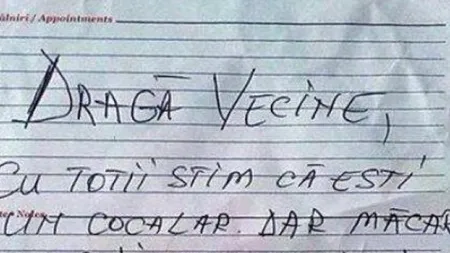 âlniri / Appointments
DRAGĂ VECINE,
CU TOȚII ȘTIM CĂ EȘTI
UN COCALAR. DAR MĂCAR